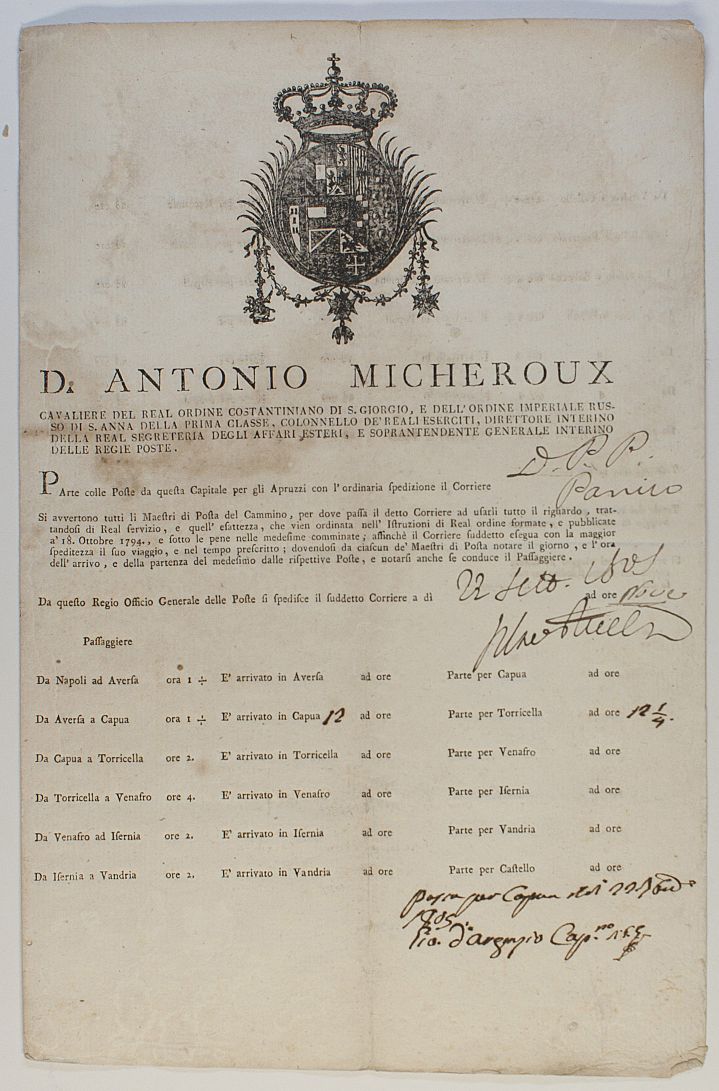 D. ANTONIO MICHEROUX
CAVALIERE DEL REAL ORDINE COSTANTINIANO DI S. GIORGIO, E DELL' ORDINE IMPERIALE RUS-
SO DI S. ANNA DELLA PRIMA CLASSE, COLONNELLO DE' REALI ESERCITI, DIRETTORE INTERINO
DELLA REAL SEGRETERIA DEGLI AFFARI ESTERI, E SOPRANTENDENTE GENERALE INTERINO
DELLE REGIE POSTE.
D. P. P.
PArte colle Poste da questa Capitale per gli Apruzzi con l'ordinaria spedizione il Corriere Panico
Si avvertono tutti li Maestri di Posta del Cammino, per dove passa il detto Corriere ad usarli tutto il riguardo, trat-
tandosi di Real servizio, e quell' esattezza, che vien ordinata nell' Istruzioni di Real ordine formate, e pubblicate
a' 18. Ottobre 1794., e sotto le pene nelle medesime comminate; affinchè il Corriere suddetto esegua con la maggior
speditezza il suo viaggio, e nel tempo prescritto; dovendosi da ciascun de' Maestri di Posta notare il giorno, e l'ora
dell' arrivo, e della partenza del medesimo dalle rispettive Poste, e notarsi anche se conduce il Passaggiere.
Da questo Regio Officio Generale delle Poste si spedisce il suddetto Corriere a dì 22 Sett. 1805 ad ore
Passaggiere
Da Napoli ad Aversa ora 1 ÷ E' arrivato in Aversa ad ore Parte per Capua ad ore
Da Aversa a Capua ora 1 ÷ E' arrivato in Capua 12 ad ore Parte per Torricella ad ore 12 1/4.
Da Capua a Torricella ore 2. E' arrivato in Torricella ad ore Parte per Venafro ad ore
Da Torricella a Venafro ore 4. E' arrivato in Venafro ad ore Parte per Isernia ad ore
Da Venafro ad Isernia ore 2. E' arrivato in Isernia ad ore Parte per Vandria ad ore
Da Isernia a Vandria ore 2. E' arrivato in Vandria ad ore Parte per Castello ad ore
Passa per Capua 22
1805.
Gio. d'